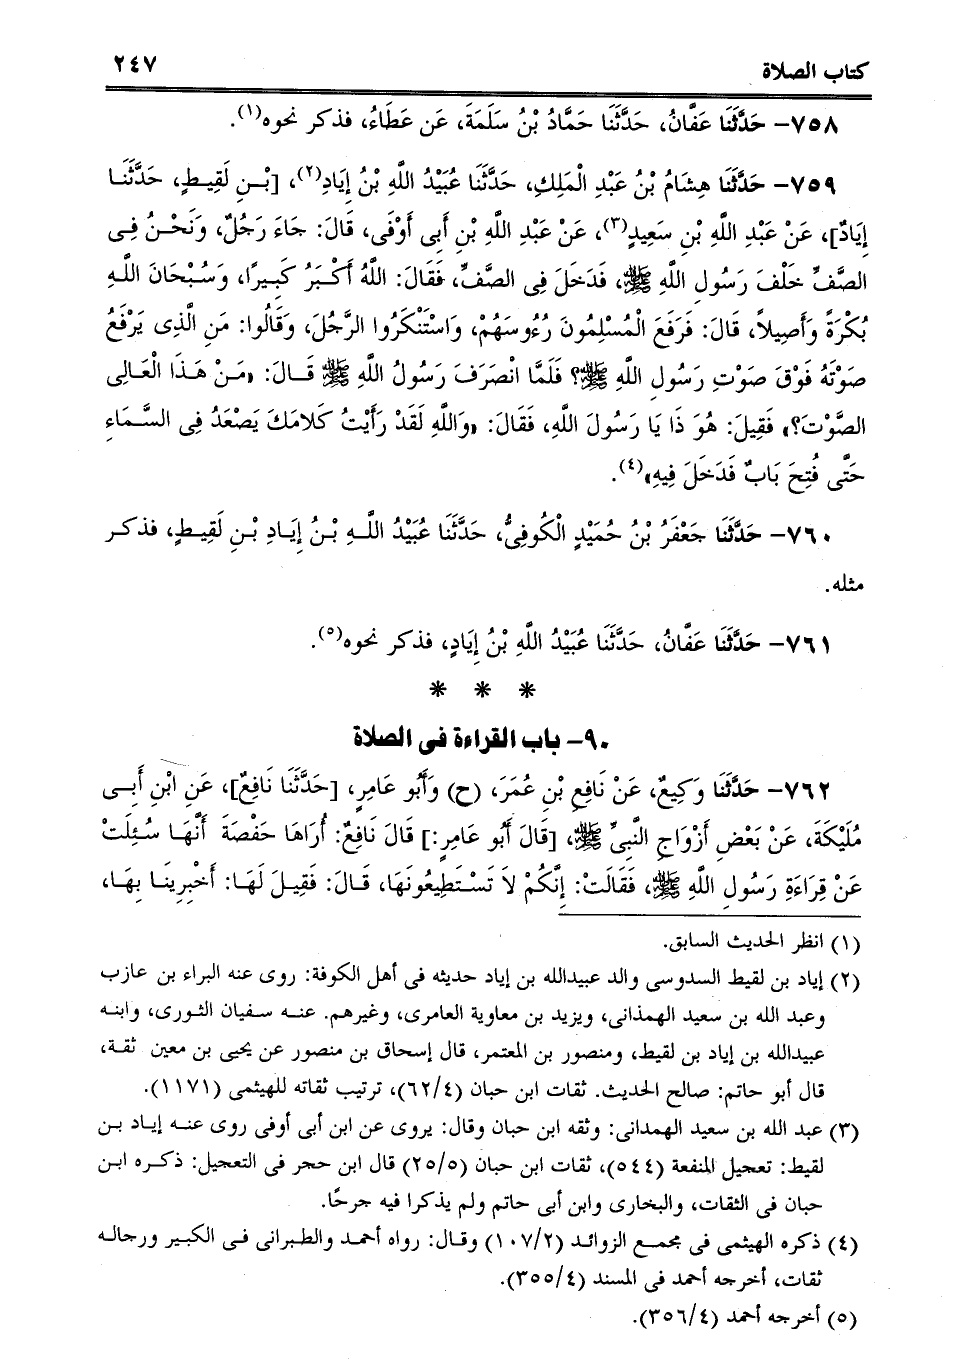 كتاب الصلاة ٢٤٧
٧٥٨- حَدَّثَنَا عَفَّانُ، حَدَّثَنَا حَمَّادُ بْنُ سَلَمَةَ، عَن عَطَاءُ، فذكر نحوه(١).
٧٥٩- حَدَّثَنَا هِشَامُ بْنُ عَبْدِ الْمَلِكِ، حَدَّثَنَا عُبَيْدُ اللَّهِ بْنُ إِيَادِ(٢)، [بْنِ لَقِيطٍ، حَدَّثَنَا
إِيَادٌ]، عَنْ عَبْدِ اللَّهِ بْنِ سَعِيدٍ(٣)، عَنْ عَبْدِ اللَّهِ بْنِ أَبِى أَوْفَى، قَالَ: جَاءَ رَجُلٌ، وَنَحْنُ فِى
الصَّفِّ خَلْفَ رَسُولِ اللَّهِ ﷺ، فَدَخَلَ فِى الصَّفِّ، فَقَالَ: اللَّهُ أَكْبَرُ كَبِيرًا، وَسُبْحَانَ اللَّهِ
بُكْرَةً وَأَصِيلاً، قَالَ: فَرَفَعَ الْمُسْلِمُونَ رُءُوسَهُمْ، وَاسْتَنْكَرُوا الرَّجُلَ، وَقَالُوا: مَنِ الَّذِى يَرْفَعُ
صَوْتَهُ فَوْقَ صَوْتِ رَسُولِ اللَّهِ ﷺ؟ فَلَمَّا انْصَرَفَ رَسُولُ اللَّهِ ﷺ قَالَ: «مَنْ هَذَا الْعَالِى
الصَّوْتَ؟» فَقِيلَ: هُوَ ذَا يَا رَسُولَ اللَّهِ، فَقَالَ: «وَاللَّهِ لَقَدْ رَأَيْتُ كَلامَكَ يَصْعَدُ فِى السَّمَاءِ
حَتَّى فُتِحَ بَابٌ فَدَخَلَ فِيهِ»(٤).
٧٦٠- حَدَّثَنَا جَعْفَرُ بْنُ حُمَيْدٍ الْكُوفِىُّ، حَدَّثَنَا عُبَيْدُ اللَّهِ بْنُ إِيَادِ بْنِ لَقِيطٍ، فذكر
مثله.
٧٦١- حَدَّثَنَا عَفَّانُ، حَدَّثَنَا عُبَيْدُ اللَّهِ بْنُ إِيَادٍ، فذكر نحوه(٥).
* * *
٩٠- باب القراءة فى الصلاة
٧٦٢- حَدَّثَنَا وَكِيعٌ، عَنْ نَافِعِ بْنِ عُمَرَ، (ح) وَأَبُو عَامِرٍ، [حَدَّثَنَا نَافِعٌ]، عَنِ ابْنِ أَبِى
مُلَيْكَةَ، عَنْ بَعْضِ أَزْوَاجِ النَّبِىِّ ﷺ، [قَالَ أَبُو عَامِرٍ:] قَالَ نَافِعٌ: أُرَاهَا حَفْصَةَ أَنَّهَا سُئِلَتْ
عَنْ قِرَاءَةِ رَسُولِ اللَّهِ ﷺ، فَقَالَتْ: إِنَّكُمْ لاَ تَسْتَطِيعُونَهَا، قَالَ: فَقِيلَ لَهَا: أَخْبِرِينَا بِهَا،
(١) انظر الحديث السابق.
(٢) إياد بن لقيط السدوسى والد عبيدالله بن إياد حديثه فى أهل الكوفة: روى عنه البراء بن عازب
وعبد الله بن سعيد الهمذانى، ويزيد بن معاوية العامرى، وغيرهم. عنه سفيان الثورى، وابنه
عبيدالله بن إياد بن لقيط، ومنصور بن المعتمر، قال إسحاق بن منصور عن يحيى بن معين ثقة،
قال أبو حاتم: صالح الحديث. ثقات ابن حبان (٦٢/٤)، ترتيب ثقاته للهيثمى (١١٧١).
(٣) عبد الله بن سعيد الهمدانى: وثقه ابن حبان وقال: يروى عن ابن أبى أوفى روى عنه إياد بن
لقيط: تعجيل المنفعة (٥٤٤)، ثقات ابن حبان (٢٥/٥) قال ابن حجر فى التعجيل: ذكره ابن
حبان فى الثقات، والبخارى وابن أبى حاتم ولم يذكرا فيه جرحًا.
(٤) ذكره الهيثمى فى مجمع الزوائد (١٠٧/٢) وقال: رواه أحمد والطبرانى فى الكبير ورجاله
ثقات، أخرجه أحمد فى المسند (٣٥٥/٤).
(٥) أخرجه أحمد (٣٥٦/٤).